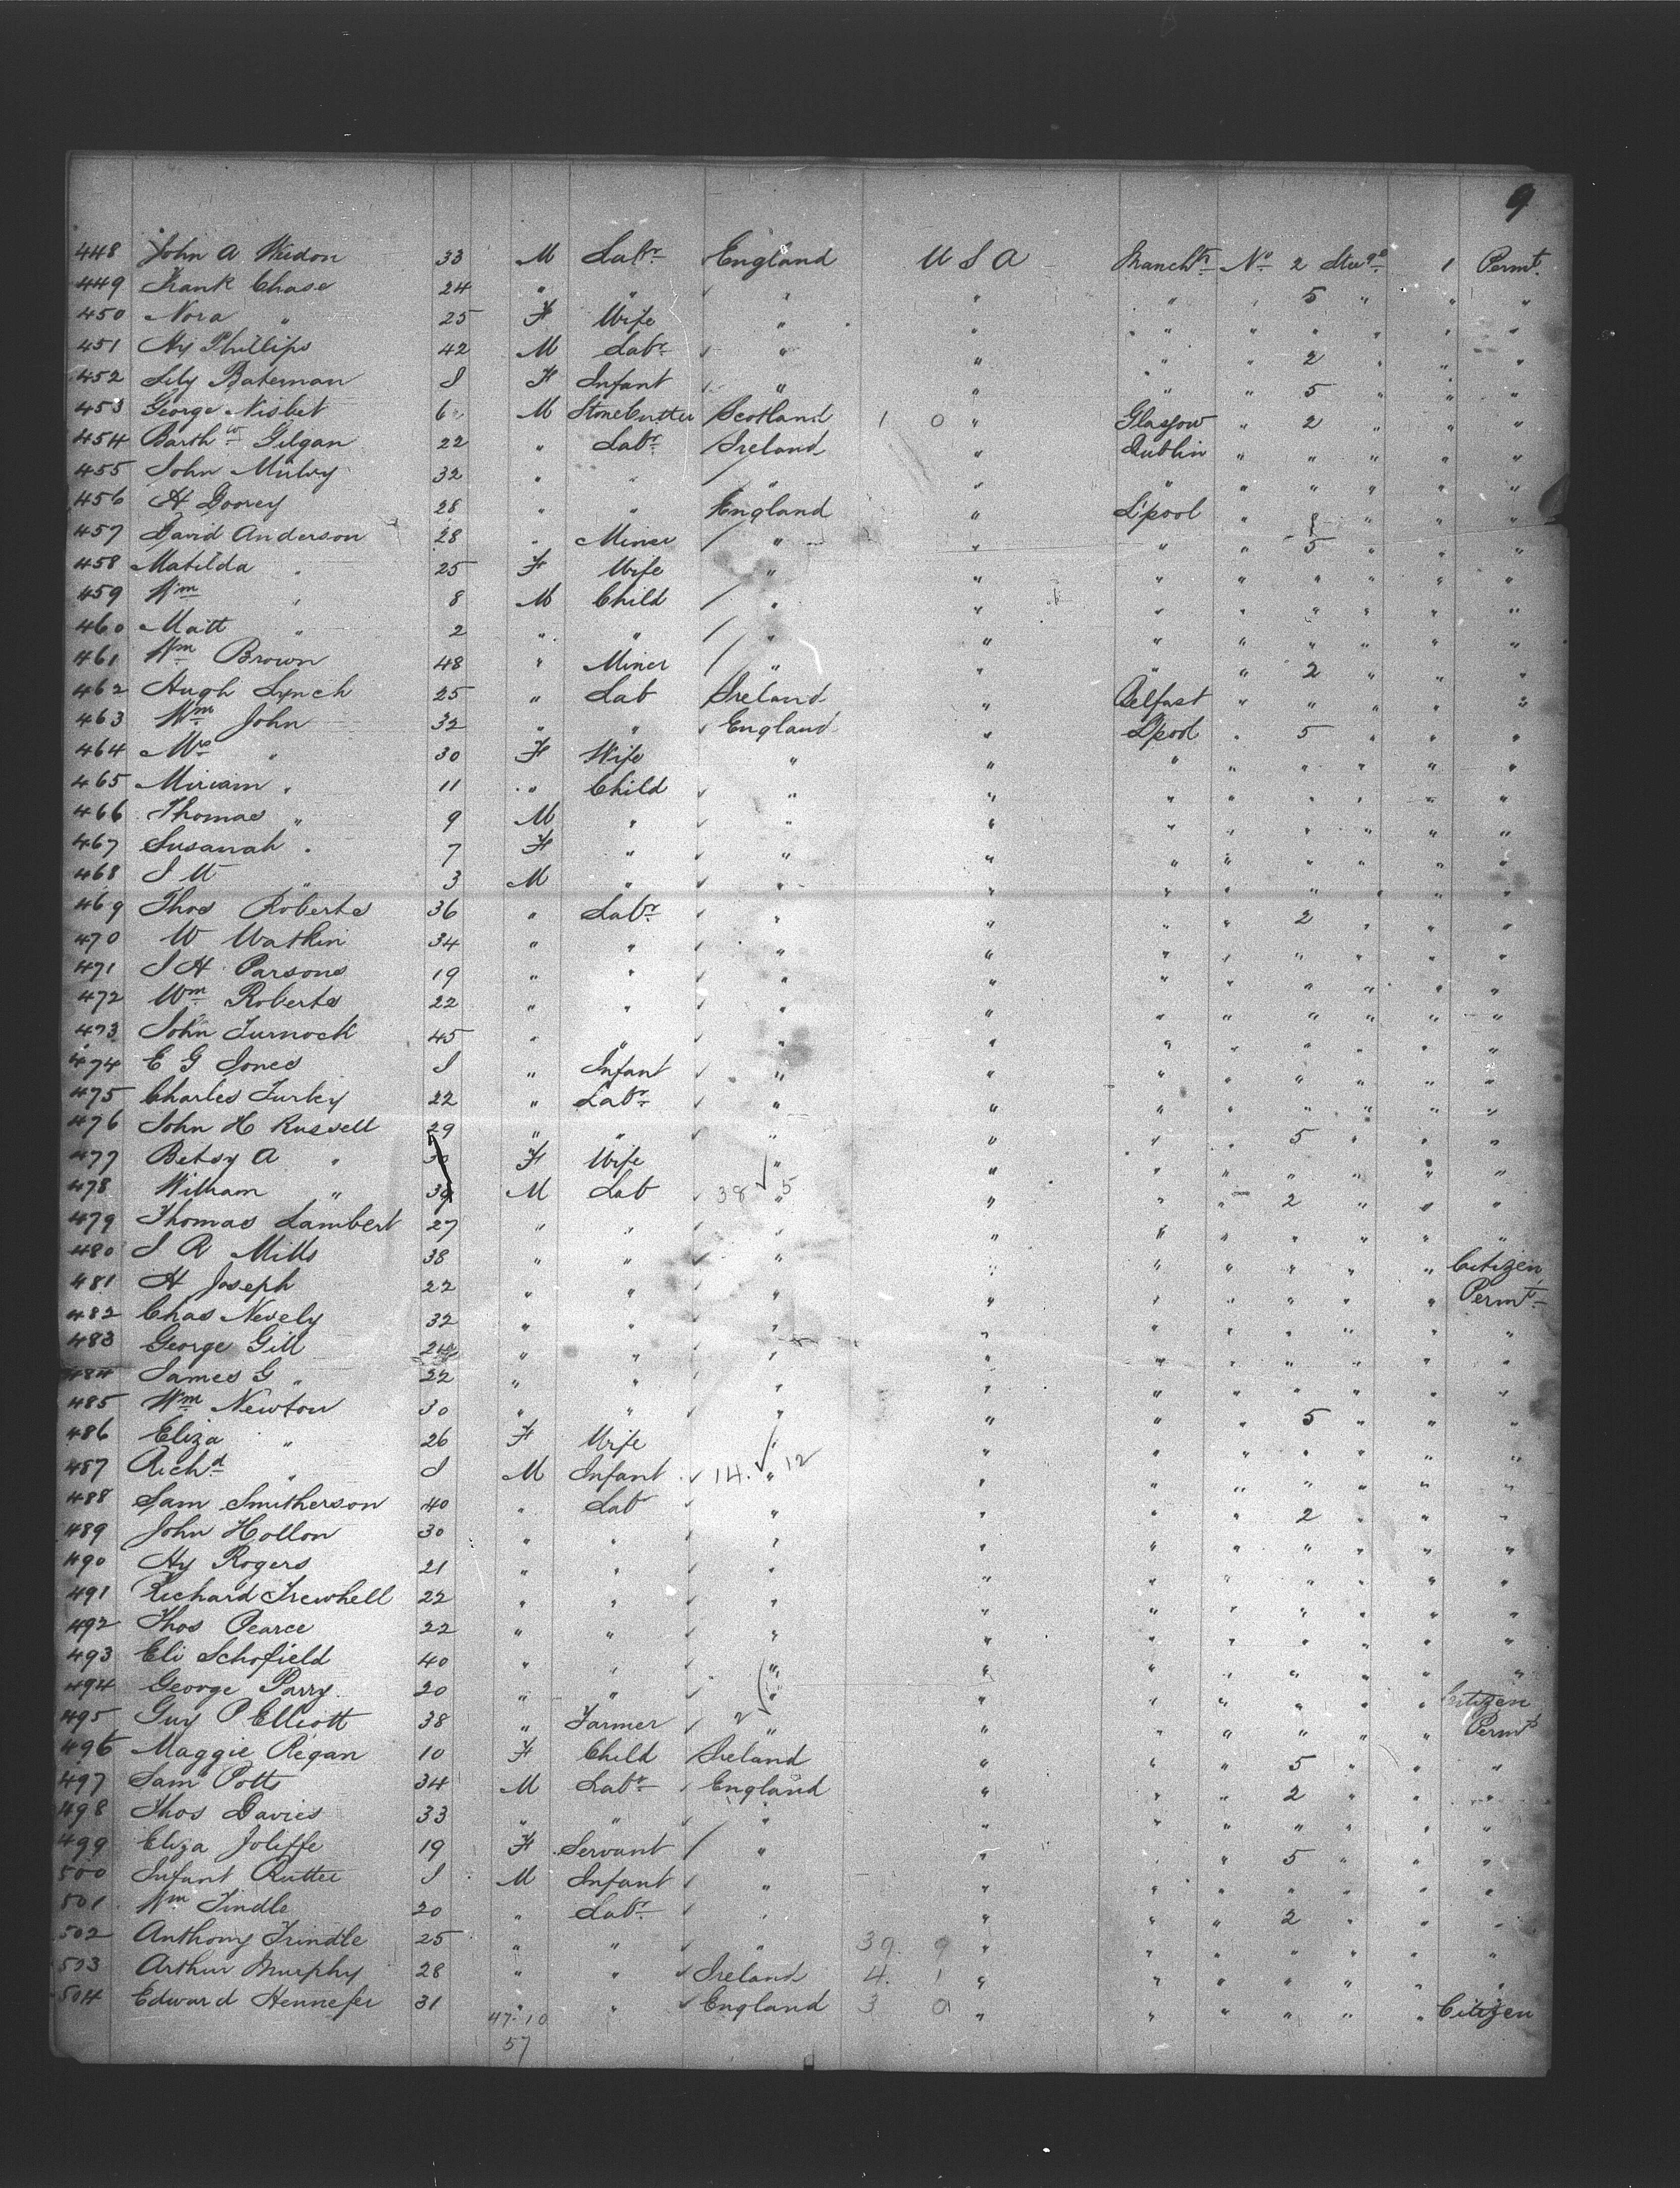 9
448 John A Weedon 33 M Labr England U S A Manchtr No 2 Steerge 1 Permt.
449 Frank Chase 24 " " " " " " 5 " " "
450 Nora " 25 F Wife " " " " " " " "
451 Hy Phillips 42 M Labr " " " " 2 " " "
452 Lily Bateman I F Infant " " " " 5 " " "
453 George Nisbet 6 M Stonecutter Scotland 1 0 " Glasgow " 2 " " "
454 Barthw Gilgan 22 " Labr Ireland " Dublin " " " " "
455 John Mulvy 32 " " " " " " " " " "
456 H Doorey 28 " " England " L'pool " " " " "
457 David Anderson 28 " Miner " " " " 5 " " "
458 Matilda " 25 F Wife " " " " " " " "
459 Wm " 8 M Child " " " " " " " "
460 Matt " 2 " " " " " " " " " "
461 Wm Brown 48 " Miner " " " " 2 " " "
462 Hugh Lynch 25 " Lab Ireland " Belfast " " " " "
463 Wm John 32 " " England " L'pool " 5 " " "
464 Mrs " 30 F Wife " " " " " " " "
465 Miriam " 11 " Child " " " " " " " "
466 Thomas " 9 M " " " " " " " " "
467 Susanah " 7 F " " " " " " " " "
468 I M " 3 M " " " " " " " " "
469 Thos Roberts 36 " Labr " " " " 2 " " "
470 W Watkin 34 " " " " " " " " " "
471 I H Parsons 19 " " " " " " " " " "
472 Wm Roberts 22 " " " " " " " " " "
473 John Turnock 45 " " " " " " " " " "
474 E G Jones I " Infant " " " " " " " "
475 Charles Turley 22 " Labr " " " " " " " "
476 John H Russell 29 " " " " " " 5 " " "
477 Betsy A " 30 F Wife " " " " " " " "
478 William " 39 M Lab 38 5 " " " " 2 " " "
479 Thomas Lambert 27 " " " " " " " " " "
480 I R Mills 38 " " " " " " " " " Citizen
481 H Joseph 22 " " " " " " " " " Permt
482 Chas Nevely 32 " " " " " " " " " "
483 George Gill " " " " " " " " " "
484 James G " 22 " " " " " " " " " "
485 Wm Newton 30 " " " " " " 5 " " "
486 Eliza " 26 F Wife " " " " " " " "
487 Richd " I M Infant 14 12 " " " " " " " "
488 Sam Smitherson 40 " Lab " " " " 2 " " "
489 John Hollon 30 " " " " " " " " " "
490 Hy Rogers 21 " " " " " " " " " "
491 Richard Trewhell 22 " " " " " " " " " "
492 Thos Pearce 22 " " " " " " " " " "
493 Eli Schofield 40 " " " " " " " " " "
494 George Parry 20 " " " " " " " " " Citizen
495 Guy P Elliott 38 " Farmer 2 " " " " " " " Permt
496 Maggie Regan 10 F Child Ireland " " " 5 " " "
497 Saml Potts 34 M Labr England " " " 2 " " "
498 Thos Davies 33 " " " " " " " " " "
499 Eliza Joliffe 19 F Servant " " " " 5 " " "
500 Infant Rutter I M Infant " " " " " " " "
501 Wm Tindle 20 " Labr " " " " 2 " " "
502 Anthony Trindle 25 " " " 39 9 " " " " " " "
503 Arthur Murphy 28 " " Ireland 4 1 " " " " " " "
504 Edward Hennefer 31 " " England 3 0 " " " " " " Citizen
47.10
57